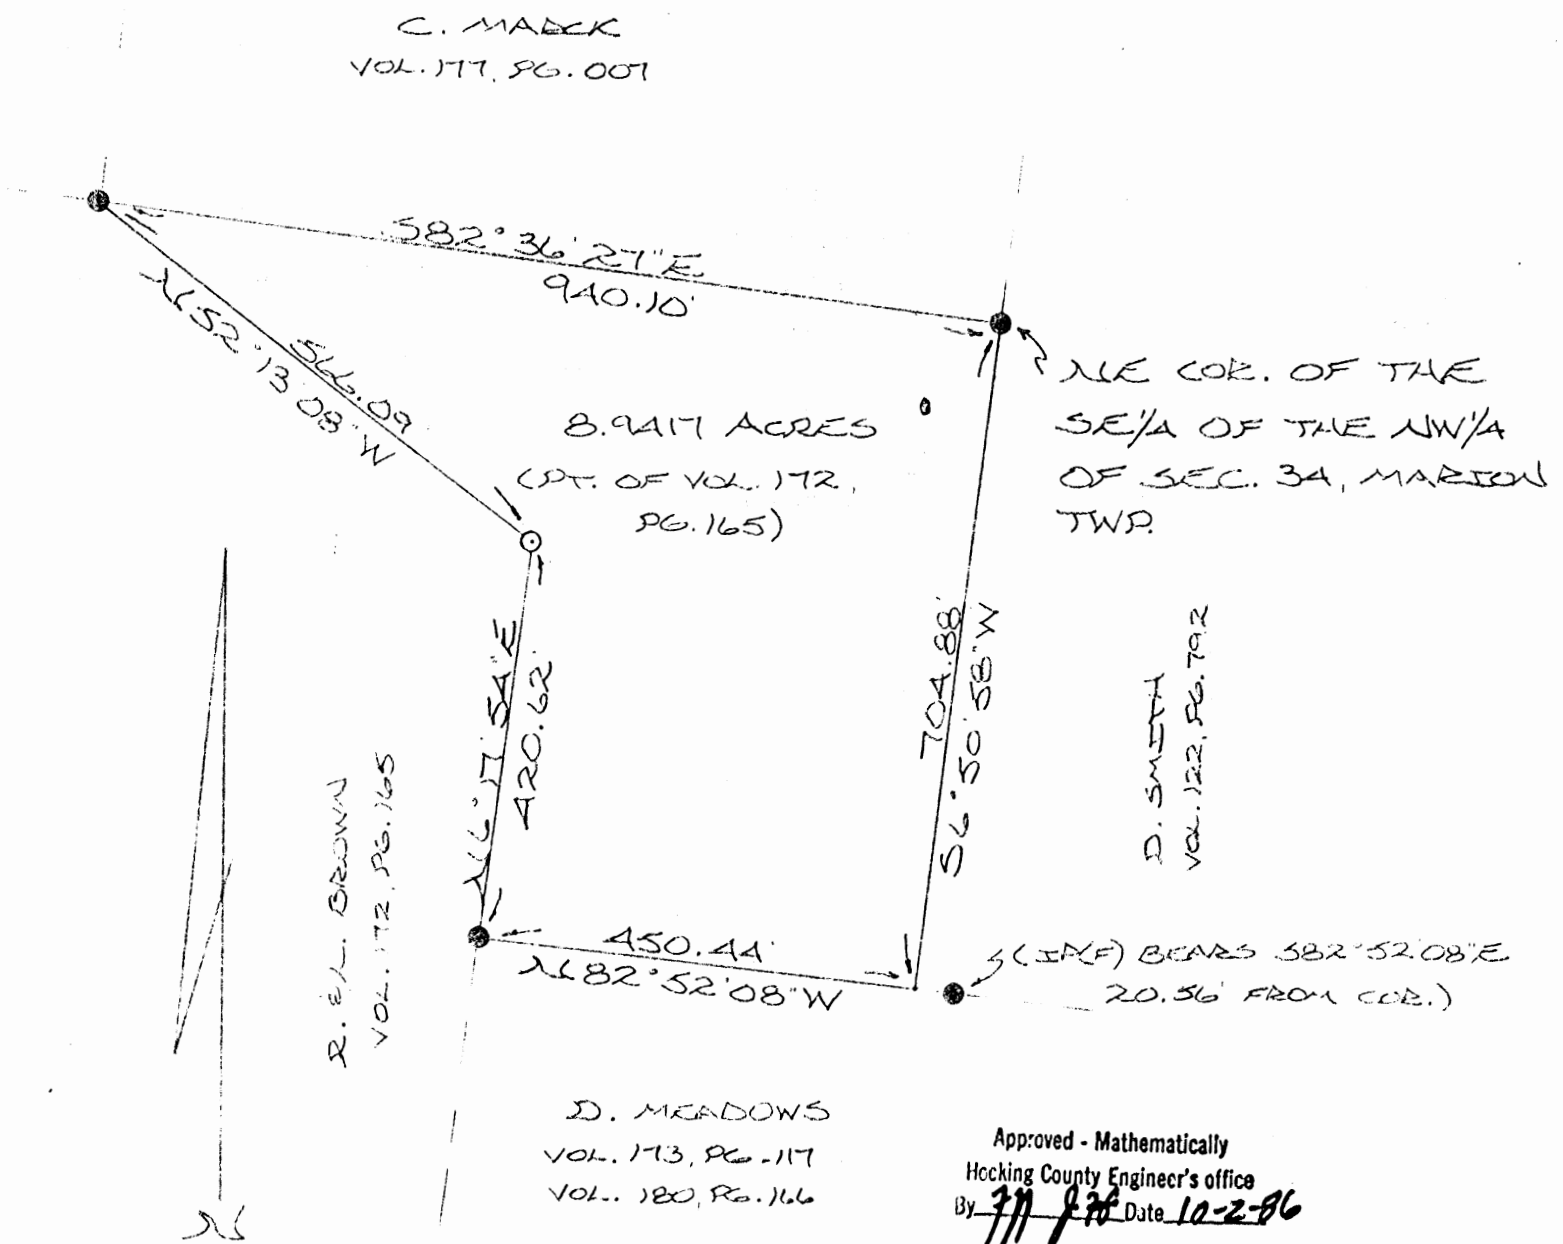 C. MAECK
VOL. 177, PG. 007
S82°36'27"E
940.10'
566.09
N52°13'08"W
8.9417 ACRES
(PT. OF VOL. 172,
PG. 165)
NE COR. OF THE
SE1/4 OF THE NW1/4
OF SEC. 34, MARION
TWP.
N6°17'54"E
420.62'
704.88'
S6°50'58"W
D. SMITH
VOL. 122, PG. 792
R. & L. BROWN
VOL. 172, PG. 165
450.44'
N82°52'08"W
(IP(F) BEARS S82°52'08"E
20.56' FROM COR.)
D. MEADOWS
VOL. 173, PG. 117
VOL. 180, PG. 166
N
Approved - Mathematically
Hocking County Engineer's office
By Date 10-2-86